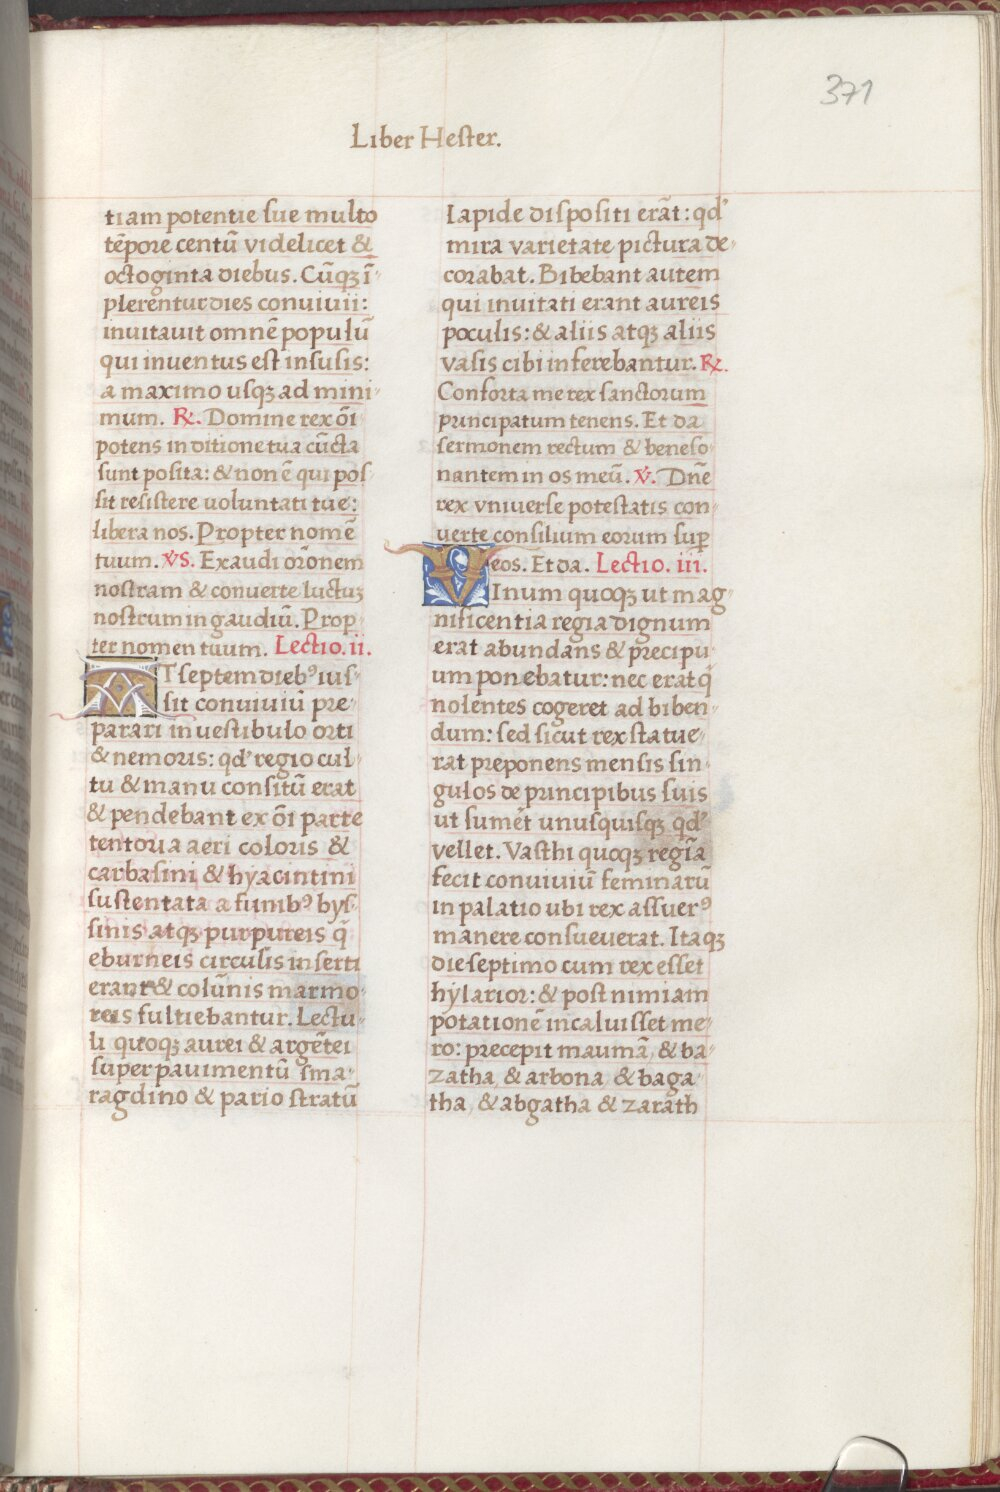 371
Liber Hester.
tiam potentie sue multo
tẽpore centũ videlicet &
octoginta diebus. Cũqꝫ ĩ-
plerentur dies convivii:
invitavit omnẽ populũ
qui inventus est in susis:
a maximo usqꝫ ad mini-
mum. ℟. Domine rex õi-
potens in ditione tua cũcta
sunt posita: & non ẽ qui pos-
sit resistere voluntati tue:
libera nos. Propter nomẽ
tuum. ṼS. Exaudi orõnem
nostram & converte luctuꝫ
nostrum in gaudiũ. Prop-
ter nomen tuum. Lectio. ii.
AT septem diebꝰ ius-
sit conviviũ pre-
parari in vestibulo orti
& nemoris: qd' regio cul-
tu & manu consitũ erat
& pendebant ex õi parte
tentoria aeri coloris &
carbasini & hyacintini
sustentata a funibꝰ bys-
sinis atqꝫ purpureis q̃
eburneis circulis inserti
erant & colũnis marmo-
reis fultiebantur. Lectu-
li quoqꝫ aurei & argẽtei
super pavimentũ sma-
ragdino & pario stratũ
lapide dispositi erãt: qd'
mira varietate pictura de-
corabat. Bibebant autem
qui invitati erant aureis
poculis: & aliis atqꝫ aliis
vasis cibi inferebantur. ℟.
Conforta me rex sanctorum
principatum tenens. Et da
sermonem rectum & beneso-
nantem in os meũ. ℣. Dñe
rex vniverse potestatis con-
verte consilium eorum sup̃
eos. Et da. Lectio. iii.
VInum quoqꝫ ut mag-
nificentia regia dignum
erat abundans & precipu-
um ponebatur: nec erat q̃
nolentes cogeret ad biben-
dum: sed sicut rex statue-
rat preponens mensis sin-
gulos de principibus suis
ut sumẽt unusquisqꝫ qd'
vellet. Vasthi quoqꝫ regĩa
fecit conviviũ feminarũ
in palatio ubi rex assuerꝰ
manere consueverat. Itaqꝫ
die septimo cum rex esset
hylarior: & post nimiam
potationẽ incaluisset me-
ro: precepit maumã, & ba-
zatha, & arbona, & baga-
tha, & abgatha & zarath